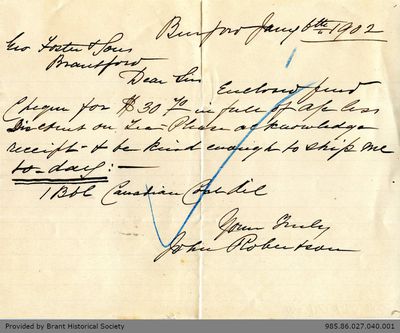 Burford Jany 6th 1902
Geo Foster & Sons
Brantford
Dear Sirs
Enclosed find
Cheque for $30 70 in full of a/c less
Discount on Tea Please acknowledge
receipt & be kind enough to ship me
to-day:—
1 Bbl Canadian Coal Oil
Yours Truly
John Robertson
Provided by Brant Historical Society
985.86.027.040.001